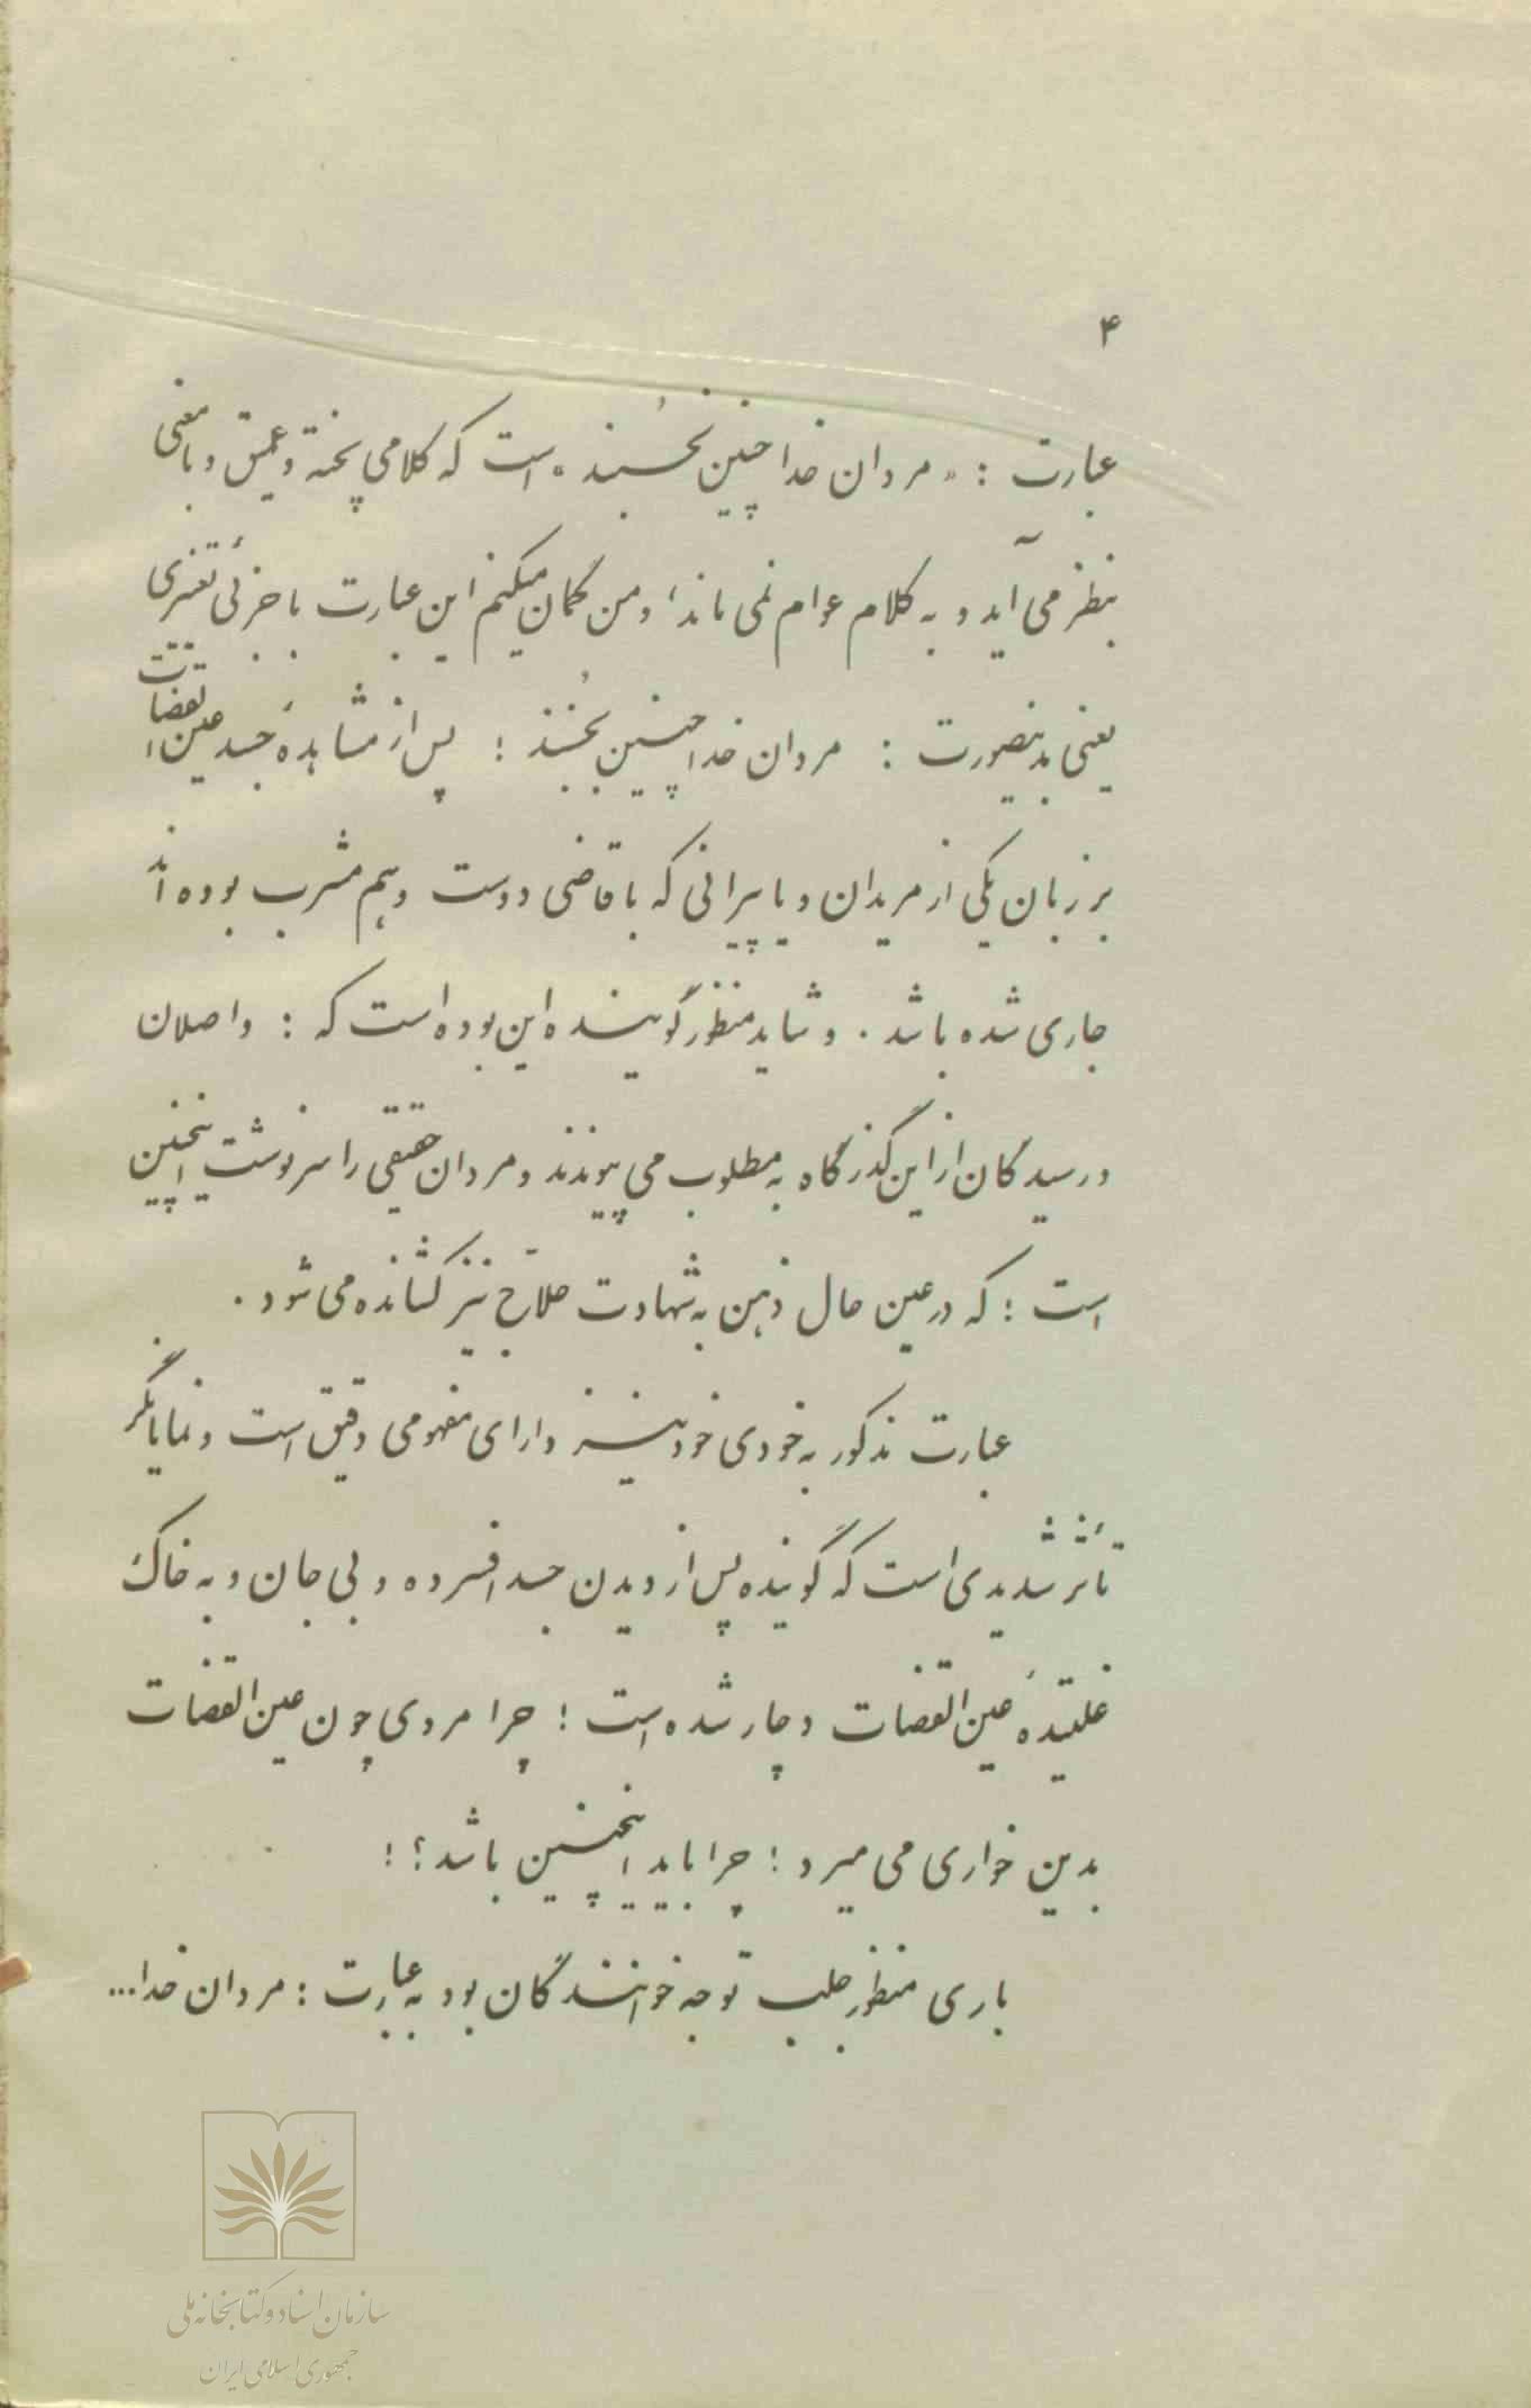 ۴
عبارت : «مردان خدا چنین نخُسبند» است که کلامی پخته و عمیق و بامعنی
بنظر می‌آید و به کلام عوام نمی ماند، و من گمان میکنم این عبارت با جزئی تغییری
یعنی بدینصورت : مردان خدا چنین بخُسبند ؛ پس از مشاهدهٔ جَسد عین القضات
بر زبان یکی از مریدان و یا پیرانی که با قاضی دوست و هم مشرب بوده‌اند
جاری شده باشد . و شاید منظور گوینده این بوده است که : واصلان
و رسیدگان از این گذرگاه به مطلوب می پیوندند و مردان حقیقی را سرنوشت اینچنین
است ؛ که در عین حال ذهن به شهادت حلّاج نیز کشانده می شود .
عبارت مذکور به خودی خود نیز دارای مفهومی دقیق است و نمایانگر
تأثر شدیدی است که گوینده پس از دیدن جسد افسرده و بی جان و به خاک
غلتیدهٔ عین القضات دچار شده است ؛ چرا مردی چون عین القضات
بدین خواری می میرد ؛ چرا باید اینچنین باشد ؟ !
باری منظور جلب توجه خوانندگان بود به عبارت : مردان خدا...
سازمان اسناد و کتابخانه ملی
جمهوری اسلامی ایران